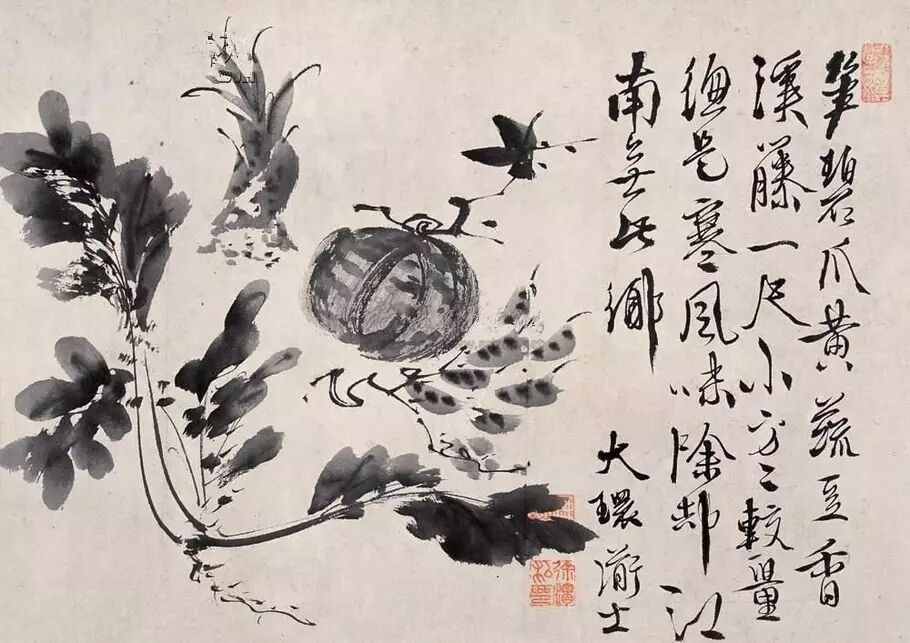 笋碧瓜黃蔬豆香
溪藤一尺小方〻較量
緫是寒風味除却江
南無此鄉
大環道士